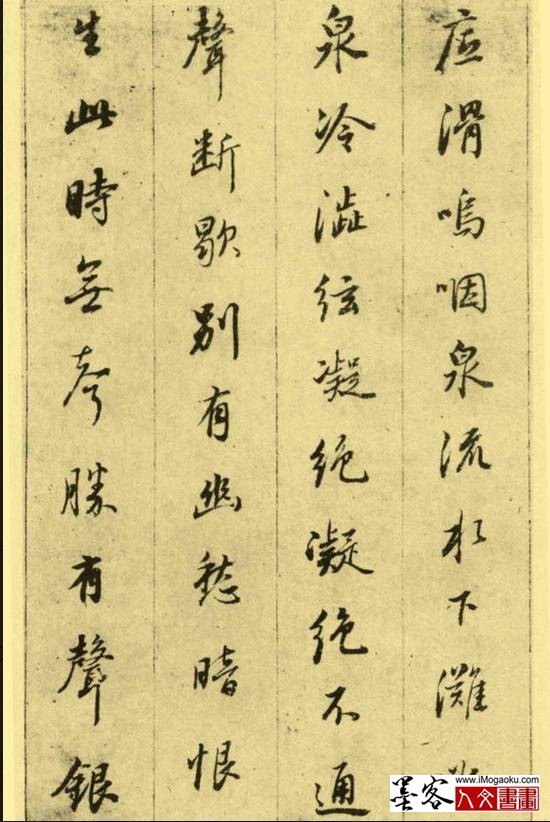 底滑嗚咽泉流水下灘
泉冷澁絃凝絕凝絕不通
聲断歇別有幽愁暗恨
生此時無声勝有聲銀
墨客
www.iMogaoku.com
人文書畫